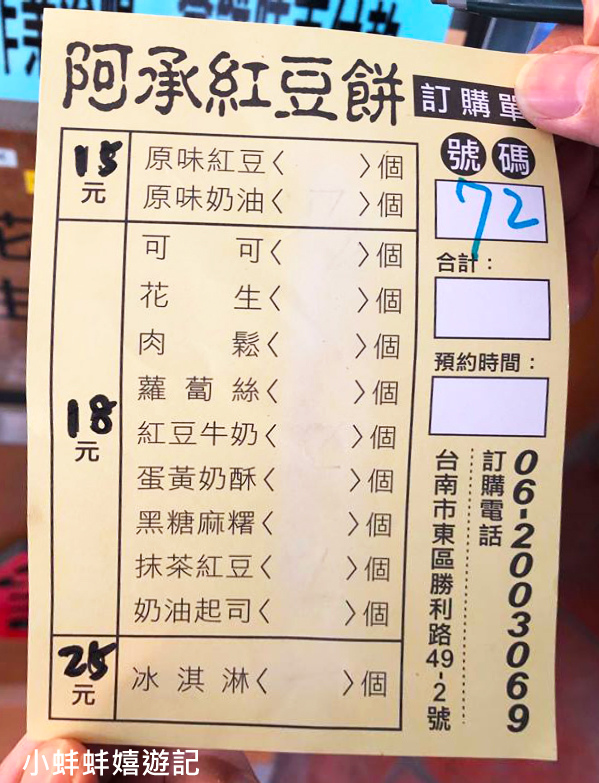 阿承紅豆餅 訂購單
15元
原味紅豆〈 〉個
原味奶油〈 〉個
18元
可可〈 〉個
花生〈 〉個
肉鬆〈 〉個
蘿蔔絲〈 〉個
紅豆牛奶〈 〉個
蛋黃奶酥〈 〉個
黑糖麻糬〈 〉個
抹茶紅豆〈 〉個
奶油起司〈 〉個
25元
冰淇淋〈 〉個
號碼
72
合計：
預約時間：
06-2003069
訂購電話
台南市東區勝利路49-2號
小蚌蚌嬉遊記